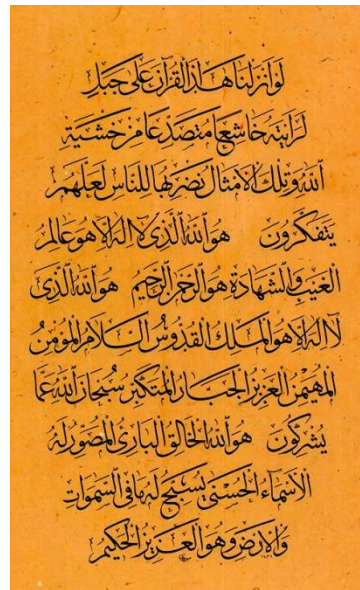 لو أنزلنا هذا القرآن على جبل
لرأيته خاشعا متصدعا من خشية
الله وتلك الأمثال نضربها للناس لعلهم
يتفكرون هو الله الذي لا إله إلا هو عالم
الغيب والشهادة هو الرحمن الرحيم هو الله الذي
لا إله إلا هو الملك القدوس السلام المؤمن
المهيمن العزيز الجبار المتكبر سبحان الله عما
يشركون هو الله الخالق البارئ المصور له
الأسماء الحسنى يسبح له ما في السموات
والأرض وهو العزيز الحكيم